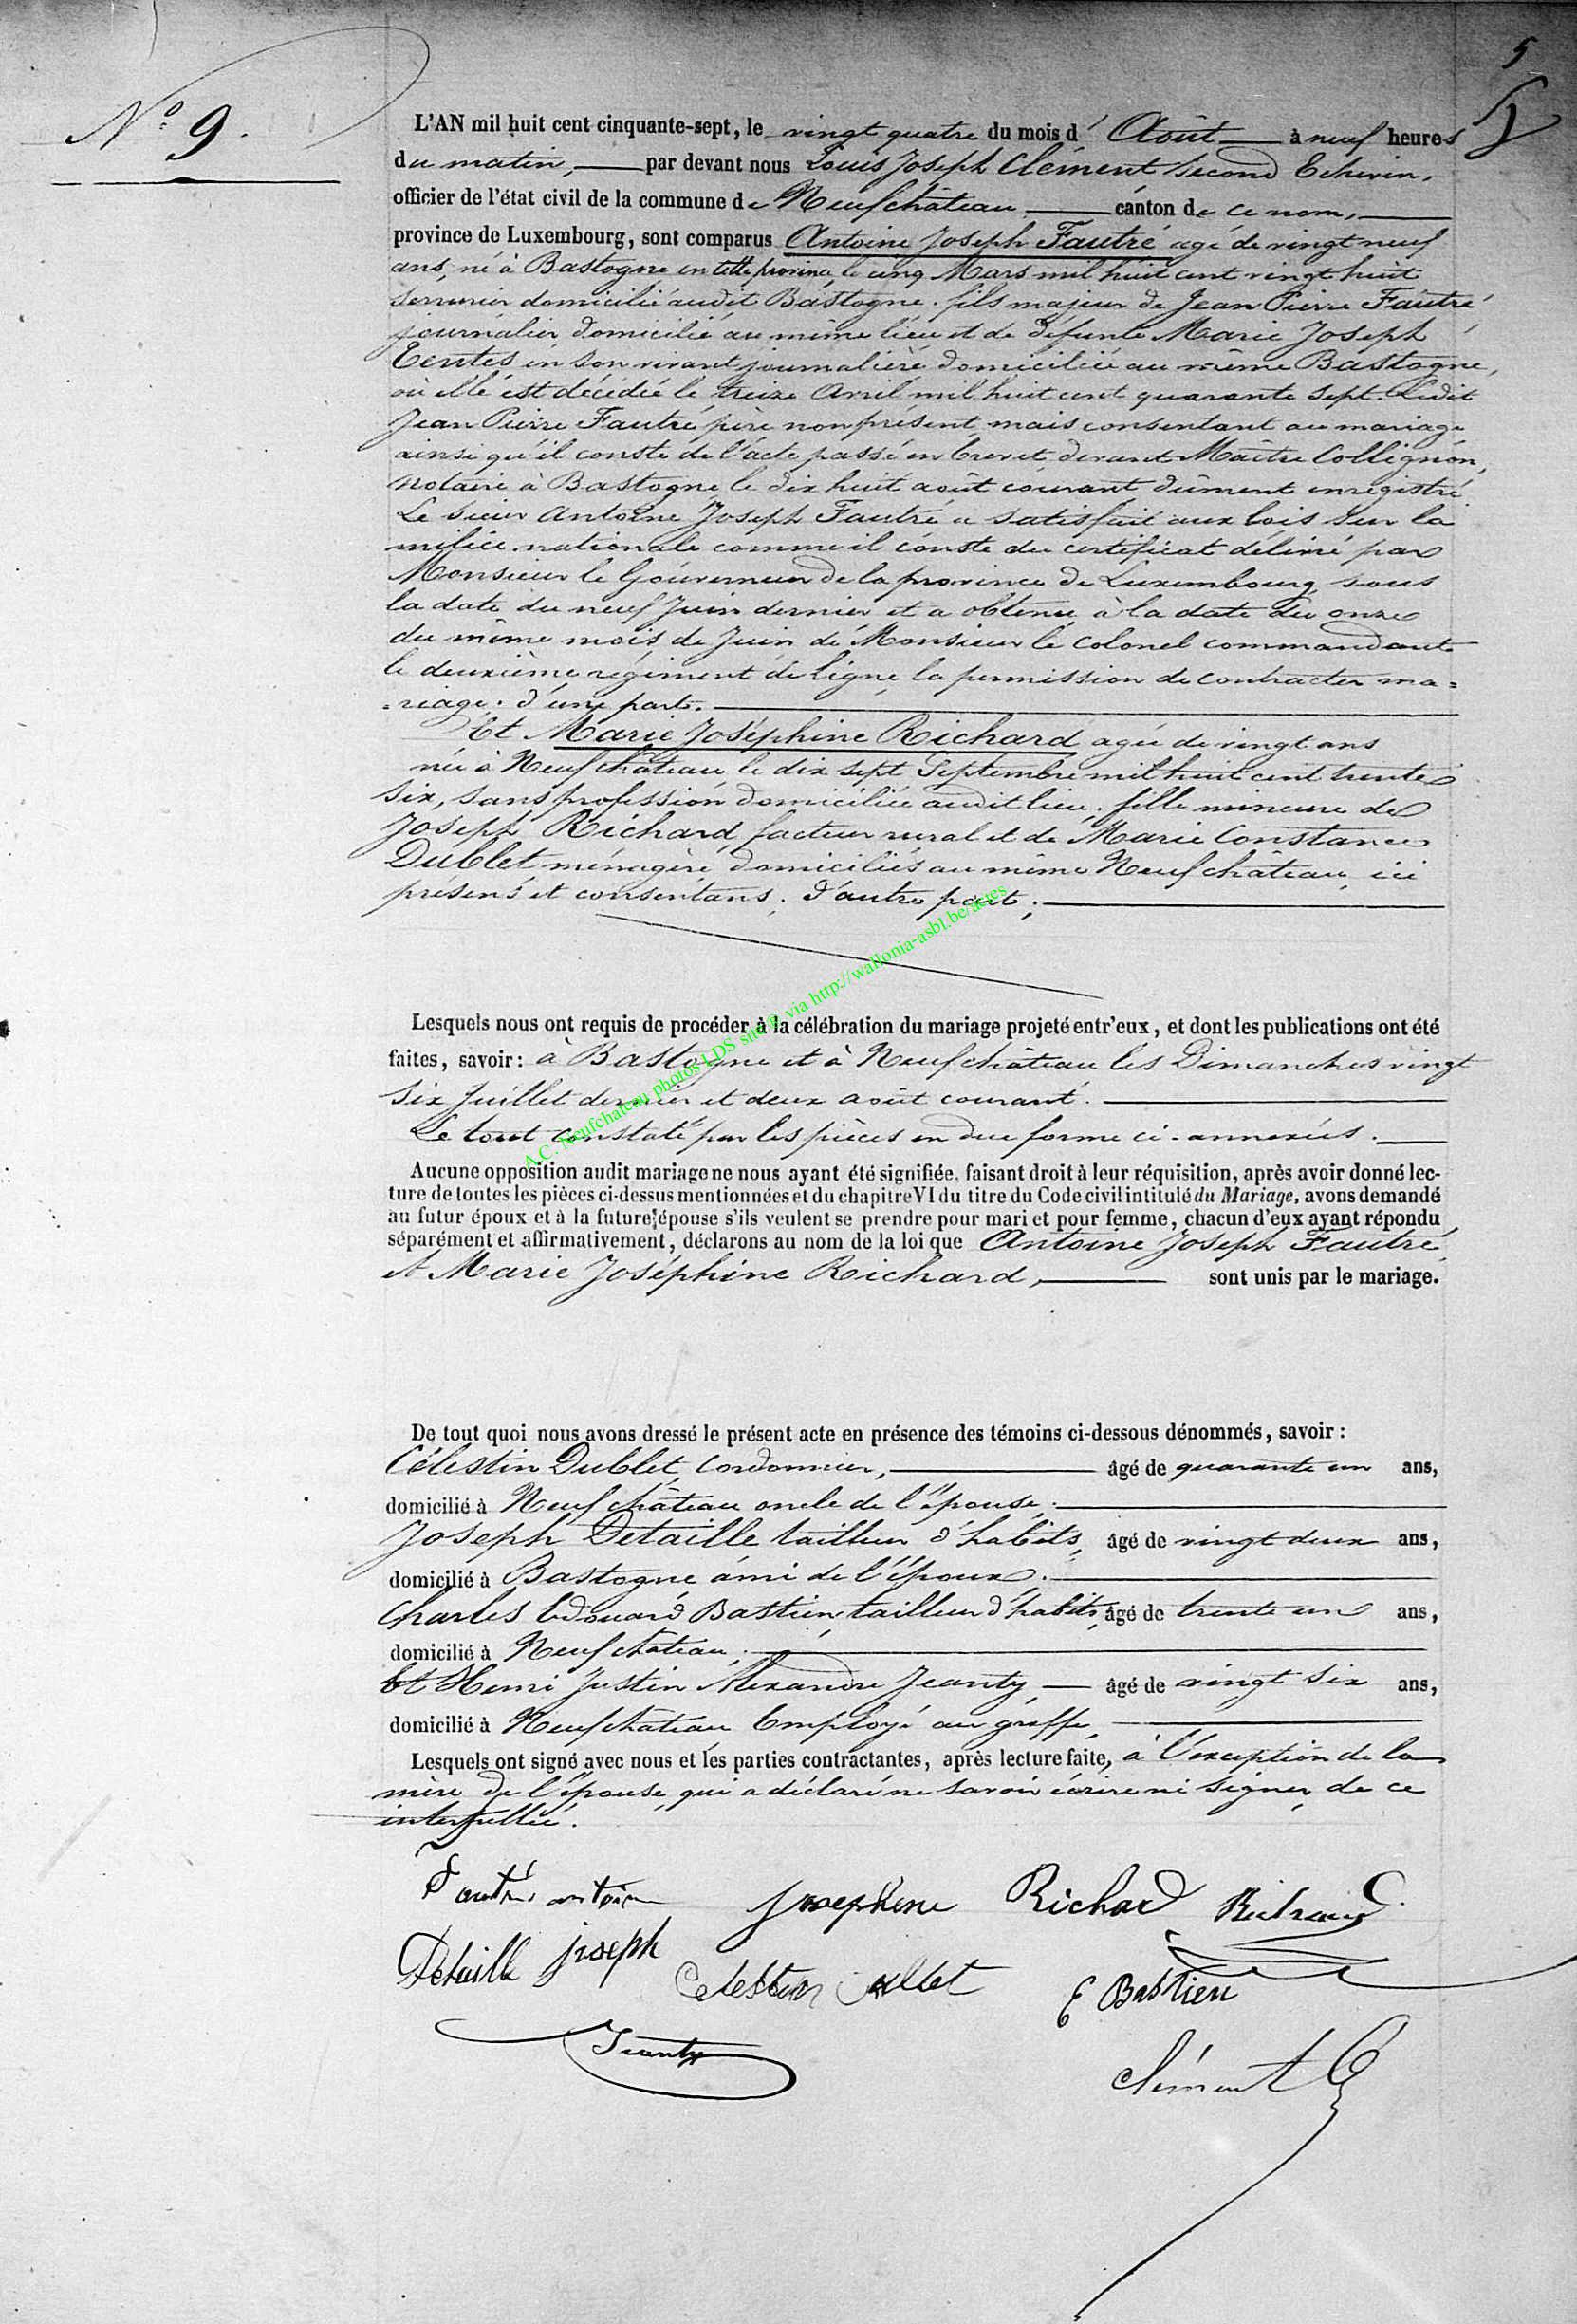 5
N° 9.
L'AN mil huit cent cinquante-sept, le vingt quatre du mois d' Août à neuf heures
du matin, par devant nous Louis Joseph Clément second Echevin,
officier de l'état civil de la commune de Neufchâteau canton de ce nom,
province de Luxembourg, sont comparus Antoine Joseph Fautré agé de vingt neuf
ans, né à Bastogne en cette province, le cinq Mars mil huit cent vingt huit
serrurier domicilié audit Bastogne. fils majeur de Jean Pierre Fautré
journalier domicilié au même lieu et de défunte Marie Joseph
en son vivant journalière domiciliée au même Bastogne,
où elle est décédée le treize Avril mil huit cent quarante sept. Ledit
Jean Pierre Fautré père non présent mais consentant au mariage
ainsi qu'il conste de l'acte passé en brevet devant Maître Collignon,
Notaire à Bastogne le dix huit août courant dûment enregistré
Le sieur Antoine Joseph Fautré a satisfait aux lois sur la
milice nationale comme il conste du certificat délivré par
Monsieur le Gouverneur de la province de Luxembourg sous
la date du neuf Juin dernier et a obtenu à la date du onze
du même mois de Juin de Monsieur le Colonel commandant
le deuxième régiment de ligne la permission de contracter ma=
=riage. d'une part.
Et Marie Joséphine Richard agée de vingt ans
née à Neufchâteau le dix sept Septembre mil huit cent trente
six, sans profession domiciliée audit lieu. fille mineure de
Joseph Richard, facteur rural et de Marie Constance
Dublet ménagère domiciliés au même Neufchateau, ici
présens et consentans. d'autre part;
Lesquels nous ont requis de procéder à la célébration du mariage projeté entr'eux, et dont les publications ont été
faites, savoir: à Bastogne et à Neufchâteau les Dimanches vingt
six Juillet dernier et deux août courant.
Le tout constaté par les pièces en due forme ci-annexées.
A.C. Neufchateau photos LDS site © via http://wallonia-asbl.be/actes
Aucune opposition audit mariage ne nous ayant été signifiée, faisant droit à leur réquisition, après avoir donné lec-
ture de toutes les pièces ci-dessus mentionnées et du chapitre VI du titre du Code civil intitulé du Mariage, avons demandé
au futur époux et à la future épouse s'ils veulent se prendre pour mari et pour femme, chacun d'eux ayant répondu
séparément et affirmativement, déclarons au nom de la loi que Antoine Joseph Fautré
et Marie Joséphine Richard, sont unis par le mariage.
De tout quoi nous avons dressé le présent acte en présence des témoins ci-dessous dénommés, savoir:
Célestin Dublet, Cordonnier, âgé de quarante un ans,
domicilié à Neufchâteau oncle de l'épouse.
Joseph Detaille tailleur d'habits, âgé de vingt deux ans,
domicilié à Bastogne ami de l'époux.
Charles Edouard Bastien, tailleur d'habits, âgé de trente un ans,
domicilié à Neufchateau.
Et Henri Justin Alexandre Jeanty âgé de vingt six ans,
domicilié à Neufchâteau Employé au greffe,
Lesquels ont signé avec nous et les parties contractantes, après lecture faite, à l'exception de la
mère de l'épouse, qui a déclaré ne savoir écrire ni signer, de ce
interpellée.
Fautré antoine Josephine Richard Richard
Detaille joseph Celestin Dublet E Bastien
Jeanty
Clément